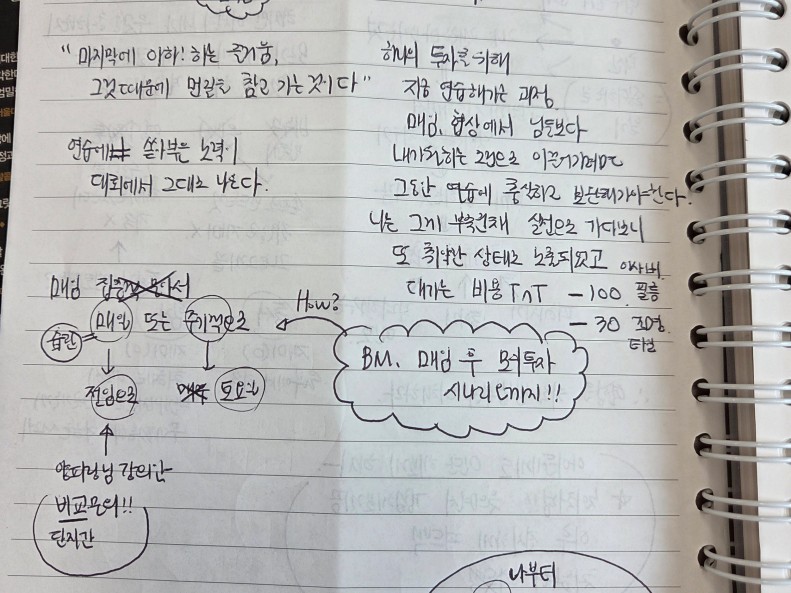 "마지막에 아하! 하는 즐거움,
그것 때문에 먼길을 참고 가는 것이다"
연습에 쏟아부은 노력이
대회에서 그대로 나온다.
매임
매일 또는 주기적으로
습관=
전임으로
토요일
강의간
비교문의!!
단지간
하나의 투자를 위해
지금 연습해가는 과정
매임, 협상에서 남들보다
내가 원하는 조건으로 이끌어가려면
그동안 연습에 충실하고 보완해가야한다.
나는 그게 부족한채 실전으로 가다보니
또 취약한 상태로 노출되었고
대가는 비용 ㅜㅜ -100 필름
-30 조명.
타일
How?
BM. 매임 후 모의투자
시나리오까지!!
나부터